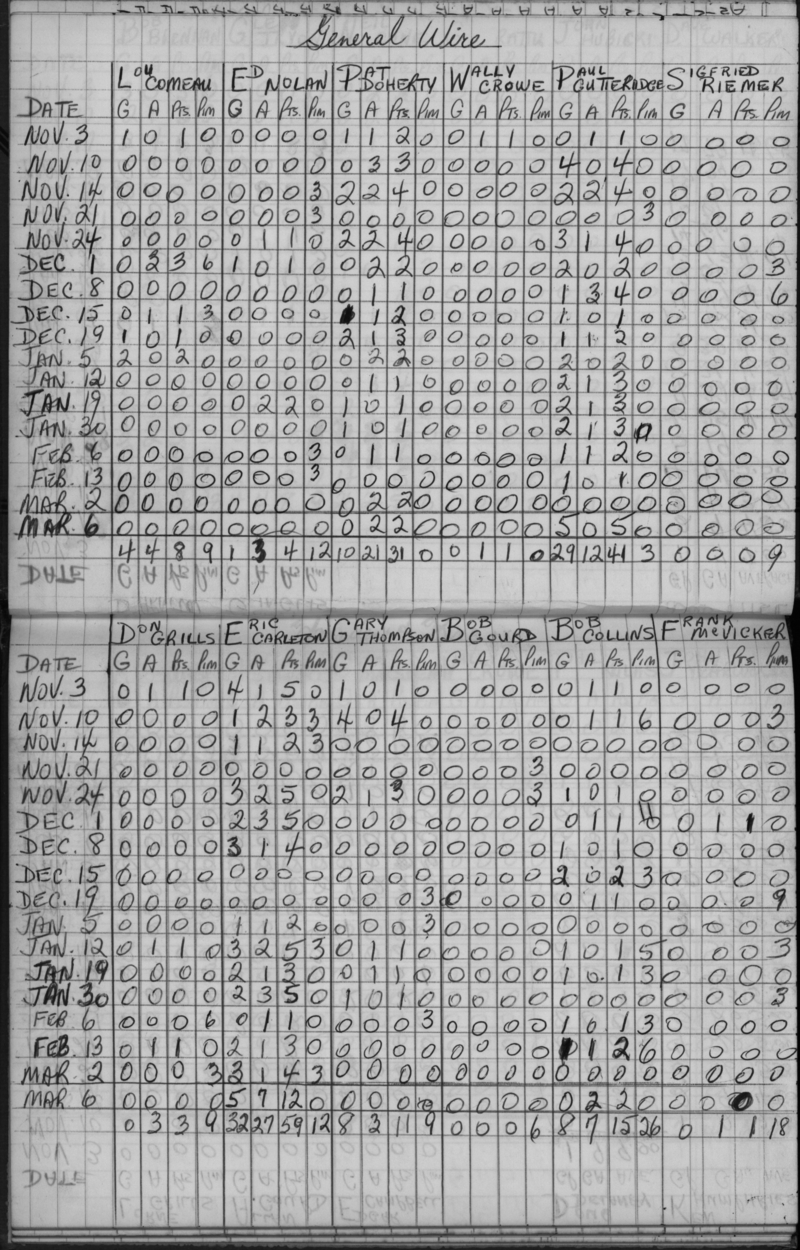 General Wire
LOU COMEAU ED NOLAN PAT DOHERTY WALLY CROWE PAUL GUTTERIDGE SIGFRIED RIEMER
DATE G A Pts. Pim G A Pts. Pim G A Pts. Pim G A Pts. Pim G A Pts. Pim G A Pts. Pim
NOV. 3 1 0 1 0 0 0 0 0 1 1 2 0 0 1 1 0 0 1 1 0 0 0 0 0
NOV. 10 0 0 0 0 0 0 0 0 0 3 3 0 0 0 0 0 4 0 4 0 0 0 0 0
NOV. 14 0 0 0 0 0 0 0 3 2 2 4 0 0 0 0 0 2 2 4 0 0 0 0 0
NOV. 21 0 0 0 0 0 0 0 3 0 0 0 0 0 0 0 0 0 0 0 3 0 0 0 0
NOV. 24 0 0 0 0 0 1 1 0 2 2 4 0 0 0 0 0 3 1 4 0 0 0 0 0
DEC. 1 0 3 3 6 1 0 1 0 0 2 2 0 0 0 0 0 2 0 2 0 0 0 0 3
DEC. 8 0 0 0 0 0 0 0 0 0 1 1 0 0 0 0 0 1 3 4 0 0 0 0 6
DEC. 15 0 1 1 3 0 0 0 0 1 1 2 0 0 0 0 0 1 0 1 0 0 0 0 0
DEC. 19 1 0 1 0 0 0 0 0 2 1 3 0 0 0 0 0 1 1 2 0 0 0 0 0
JAN. 5 2 0 2 0 0 0 0 0 0 2 2 0 0 0 0 0 2 0 2 0 0 0 0 0
JAN. 12 0 0 0 0 0 0 0 0 0 1 1 0 0 0 0 0 2 1 3 0 0 0 0 0
JAN. 19 0 0 0 0 0 2 2 0 1 0 1 0 0 0 0 0 2 1 3 0 0 0 0 0
JAN. 30 0 0 0 0 0 0 0 0 1 0 1 0 0 0 0 0 2 1 3 0 0 0 0 0
FEB. 6 0 0 0 0 0 0 0 3 0 1 1 0 0 0 0 0 1 1 2 0 0 0 0 0
FEB. 13 0 0 0 0 0 0 0 3 0 0 0 0 0 0 0 0 1 0 1 0 0 0 0 0
MAR. 2 0 0 0 0 0 0 0 0 0 2 2 0 0 0 0 0 0 0 0 0 0 0 0 0
MAR. 6 0 0 0 0 0 0 0 0 0 2 2 0 0 0 0 0 5 0 5 0 0 0 0 0
4 4 8 9 1 3 4 12 10 21 31 0 0 1 1 0 29 12 41 3 0 0 0 9
DON GRILLS ERIC CARLETON GARY THOMPSON BOB GOURD BOB COLLINS FRANK McVICKER
DATE G A Pts. Pim G A Pts. Pim G A Pts. Pim G A Pts. Pim G A Pts. Pim G A Pts. Pim
NOV. 3 0 1 1 0 4 1 5 0 1 0 1 0 0 0 0 0 0 1 1 0 0 0 0 0
NOV. 10 0 0 0 0 1 2 3 3 4 0 4 0 0 0 0 0 0 1 1 6 0 0 0 3
NOV. 14 0 0 0 0 1 1 2 3 0 0 0 0 0 0 0 0 0 0 0 0 0 0 0 0
NOV. 21 0 0 0 0 0 0 0 0 0 0 0 0 0 0 0 3 0 0 0 0 0 0 0 0
NOV. 24 0 0 0 0 3 2 5 0 2 1 3 0 0 0 0 3 1 0 1 0 0 0 0 0
DEC. 1 0 0 0 0 2 3 5 0 0 0 0 0 0 0 0 0 0 1 1 0 1 1 0
DEC. 8 0 0 0 0 3 1 4 0 0 0 0 0 0 0 0 0 1 0 1 0 0 0 0 0
DEC. 15 0 0 0 0 0 0 0 0 0 0 0 0 0 0 0 0 2 0 2 3 0 0 0 0
DEC. 19 0 0 0 0 0 0 0 0 0 0 0 3 0 0 0 0 0 1 1 0 0 0 0 9
JAN. 5 0 0 0 0 1 1 2 0 0 0 0 3 0 0 0 0 0 0 0 0 0 0 0 0
JAN. 12 0 1 1 0 3 2 5 3 0 1 1 0 0 0 0 0 1 0 1 5 0 0 0 3
JAN. 19 0 0 0 0 2 1 3 0 0 1 1 0 0 0 0 0 1 0 1 3 0 0 0 0
JAN. 30 0 0 0 0 2 3 5 0 1 0 1 0 0 0 0 0 0 0 0 0 0 0 0 3
FEB 6 0 0 0 6 0 1 1 0 0 0 0 3 0 0 0 0 1 0 1 3 0 0 0 0
FEB. 13 0 1 1 0 2 1 3 0 0 0 0 0 0 0 0 0 1 1 2 6 0 0 0 0
MAR. 2 0 0 0 3 3 1 4 3 0 0 0 0 0 0 0 0 0 0 0 0 0 0 0 0
MAR 6 0 0 0 0 5 7 12 0 0 0 0 0 0 0 0 0 0 2 2 0 0 0 0 0
0 3 3 9 32 27 59 12 8 3 11 9 0 0 0 6 8 7 15 26 0 1 1 18